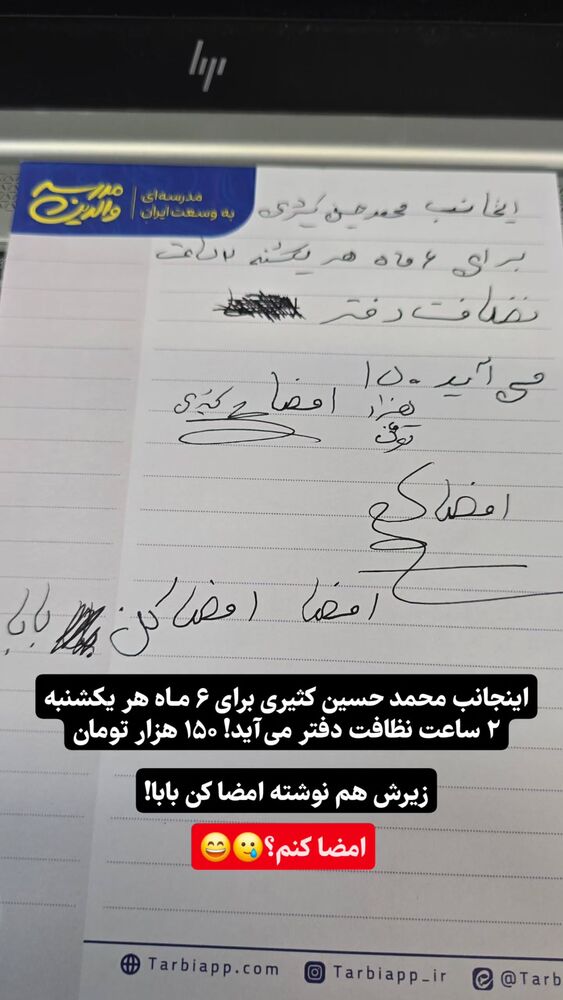 hp
مدرسه والدین
مدرسه‌ای
به وسعت ایران
اینجانب محمد حسین کثیری
برای ۶ ماه هر یکشنبه ۲ ساعت
نضافت دفتر
می آید ۱۵۰
هزار
تومن
امضا ح کثیری
امضا
امضا امضا کن بابا
اینجانب محمد حسین کثیری برای ۶ ماه هر یکشنبه
۲ ساعت نظافت دفتر می‌آید! ۱۵۰ هزار تومان
زیرش هم نوشته امضا کن بابا!
امضا کنم؟🥲😄
Tarbiapp.com Tarbiapp_ir @Tarb